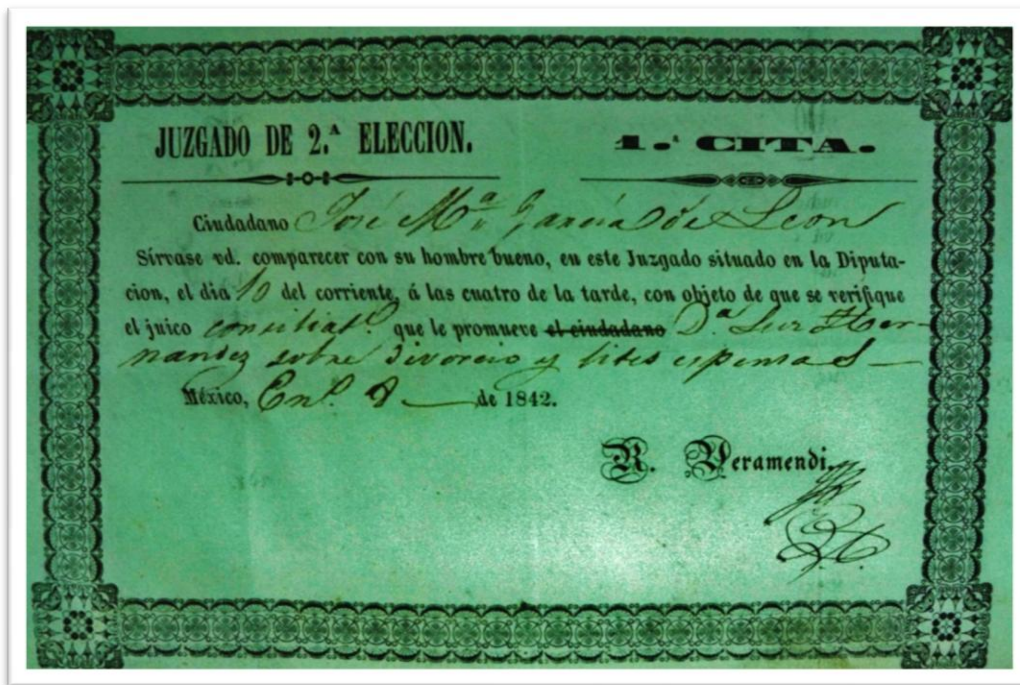 JUZGADO DE 2.ª ELECCION.
1.ª CITA.
Ciudadano José Mª Garcia de Leon
Sírvase vd. comparecer con su hombre bueno, en este Juzgado situado en la Diputa-
cion, el dia 10 del corriente, á las cuatro de la tarde, con objeto de que se verifique
el juico consiliatº. que le promueve el ciudadano Dª Luz Her-
nandez sobre divorcio y litis espensas
México, Enº. 8 de 1842.
R. Veramendi.